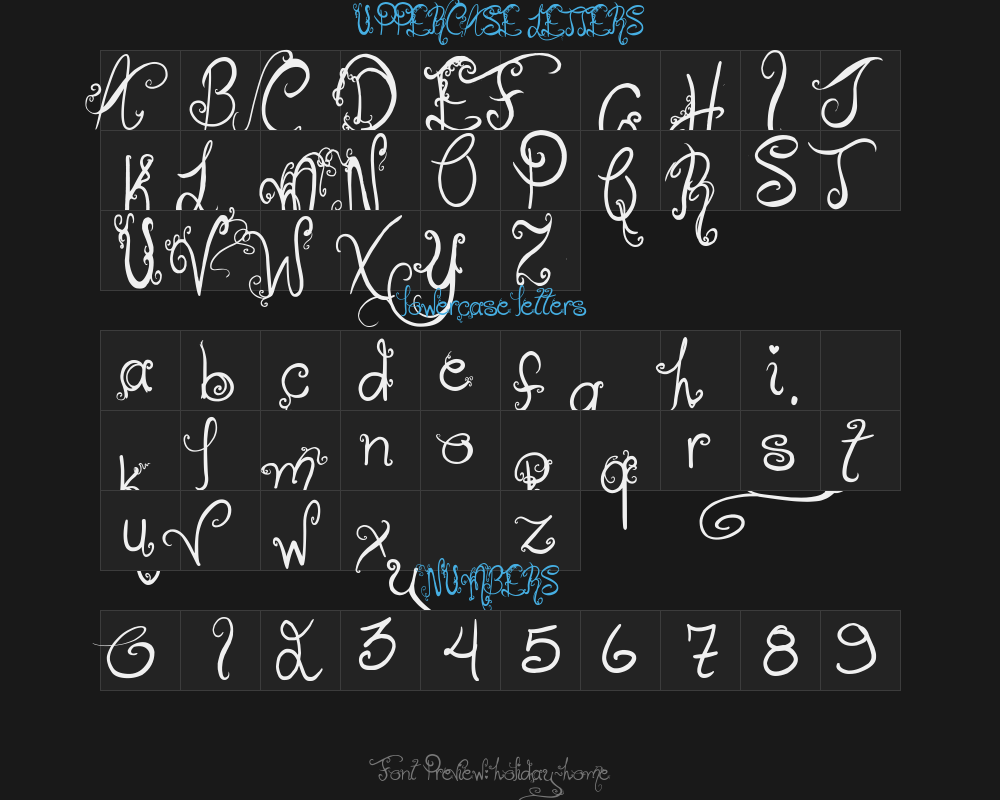 UPPERCASE LETTERS
A B C D E F G H I J
K L M N O P Q R S T
U V W X Y Z
lowercase letters
a b c d e f g h i j
k l m n o p q r s t
u v w x y z
NUMBERS
0 1 2 3 4 5 6 7 8 9
Font Preview: holiday home